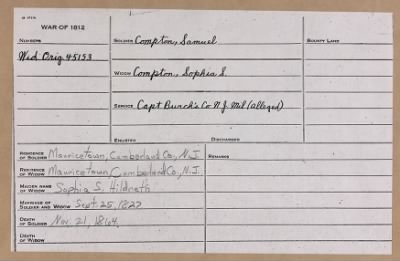 WAR OF 1812
NUMBERS
Wid. Orig. 45153
SOLDIER Compton, Samuel
BOUNTY LAND
WIDOW Compton, Sophia S.
SERVICE Capt Burch's Co N.J. Mil (alleged)
ENLISTED
DISCHARGED
RESIDENCE OF SOLDIER Mauricetown, Cumberland Co., N.J.
REMARKS
RESIDENCE OF WIDOW Mauricetown, Cumberland Co., N.J.
MAIDEN NAME OF WIDOW Sophia S. Hildreth
MARRIAGE OF SOLDIER AND WIDOW Sept. 25, 1827
DEATH OF SOLDIER Nov. 21, 1864
DEATH OF WIDOW